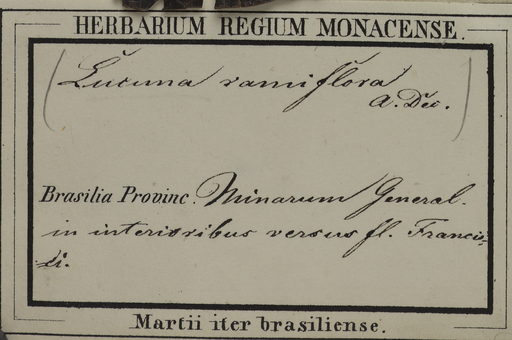 HERBARIUM REGIUM MONACENSE.
(Lucuma ramiflora
A. Dec.)
Brasilia Provinc. Minarum General.
in interioribus versus fl. Francis-
ci.
Martii iter brasiliense.